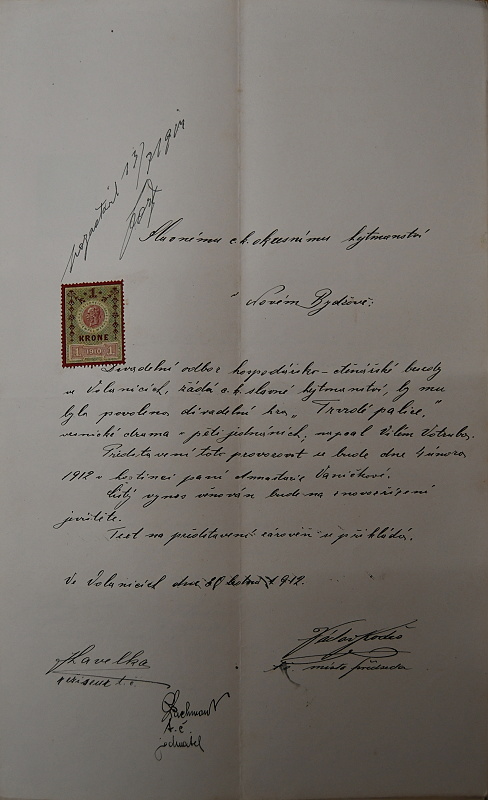 Slavnému c.k. okresnímu hejtmanství
v Novém Bydžově.
1
KRONE
1 1910 1
Divadelní odbor hospodářsko-čtenářské besedy
v Volanicích, žádá c.k. slavné hejtmanství, by mu
byla povolena divadelní hra „Tvrdé palice,"
vesnické drama v pěti jednáních, napsal Vilém Votruba.
Představení toto provozovat se bude dne 4 února
1912 v hostinci paní Annastazie Vaníčkové.
Čistý výnos věnován bude na znovuzřízení
jeviště.
Text na představení zároveň se přikládá.
Ve Volanicích dne ledna 1912.
Havelka
režiseur t.č.
místo předseda
t.č.
jednatel